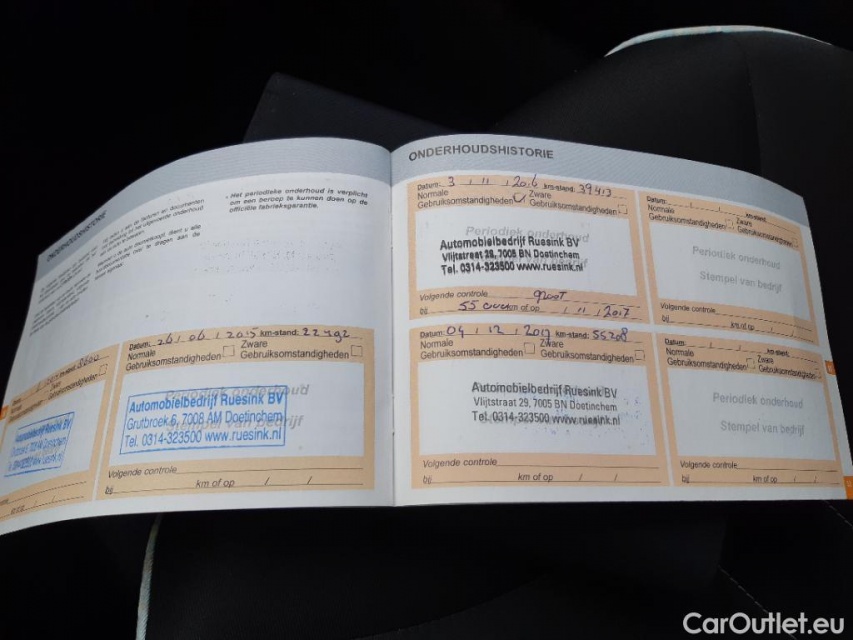 ONDERHOUDSHISTORIE
• Het periodieke onderhoud is verplicht
om een beroep te kunnen doen op de
officiële fabrieksgarantie.
8600
Datum: 26 / 06 / 2015 km-stand: 22792
Normale
Gebruiksomstandigheden
Zware
Gebruiksomstandigheden
Periodiek onderhoud
Stempel van bedrijf
Automobielbedrijf Ruesink BV
Grutbroek 6, 7008 AM Doetinchem
Tel. 0314-323500 www.ruesink.nl
Volgende controle
bij km of op / /
ONDERHOUDSHISTORIE
Datum: 3 / 11 / 2016 km-stand: 39413
Normale
Gebruiksomstandigheden
Zware
Gebruiksomstandigheden
Periodiek onderhoud
Automobielbedrijf Ruesink BV
Vlijtstraat 29, 7005 BN Doetinchem
Tel. 0314-323500 www.ruesink.nl
Volgende controle groot
bij 55 km of op / 11 / 2017
Datum: / / km-stand:
Normale
Gebruiksomstandigheden
Zware
Gebruiksomstandigheden
Periodiek onderhoud
Stempel van bedrijf
Volgende controle
bij km of op / /
Datum: 04 / 12 / 2017 km-stand: 55208
Normale
Gebruiksomstandigheden
Zware
Gebruiksomstandigheden
Automobielbedrijf Ruesink BV
Vlijtstraat 29, 7005 BN Doetinchem
Tel. 0314-323500 www.ruesink.nl
Volgende controle
bij km of op / /
Datum: / / km-stand:
Normale
Gebruiksomstandigheden
Zware
Gebruiksomstandigheden
Periodiek onderhoud
Stempel van bedrijf
Volgende controle
bij km of op / /
CarOutlet.eu